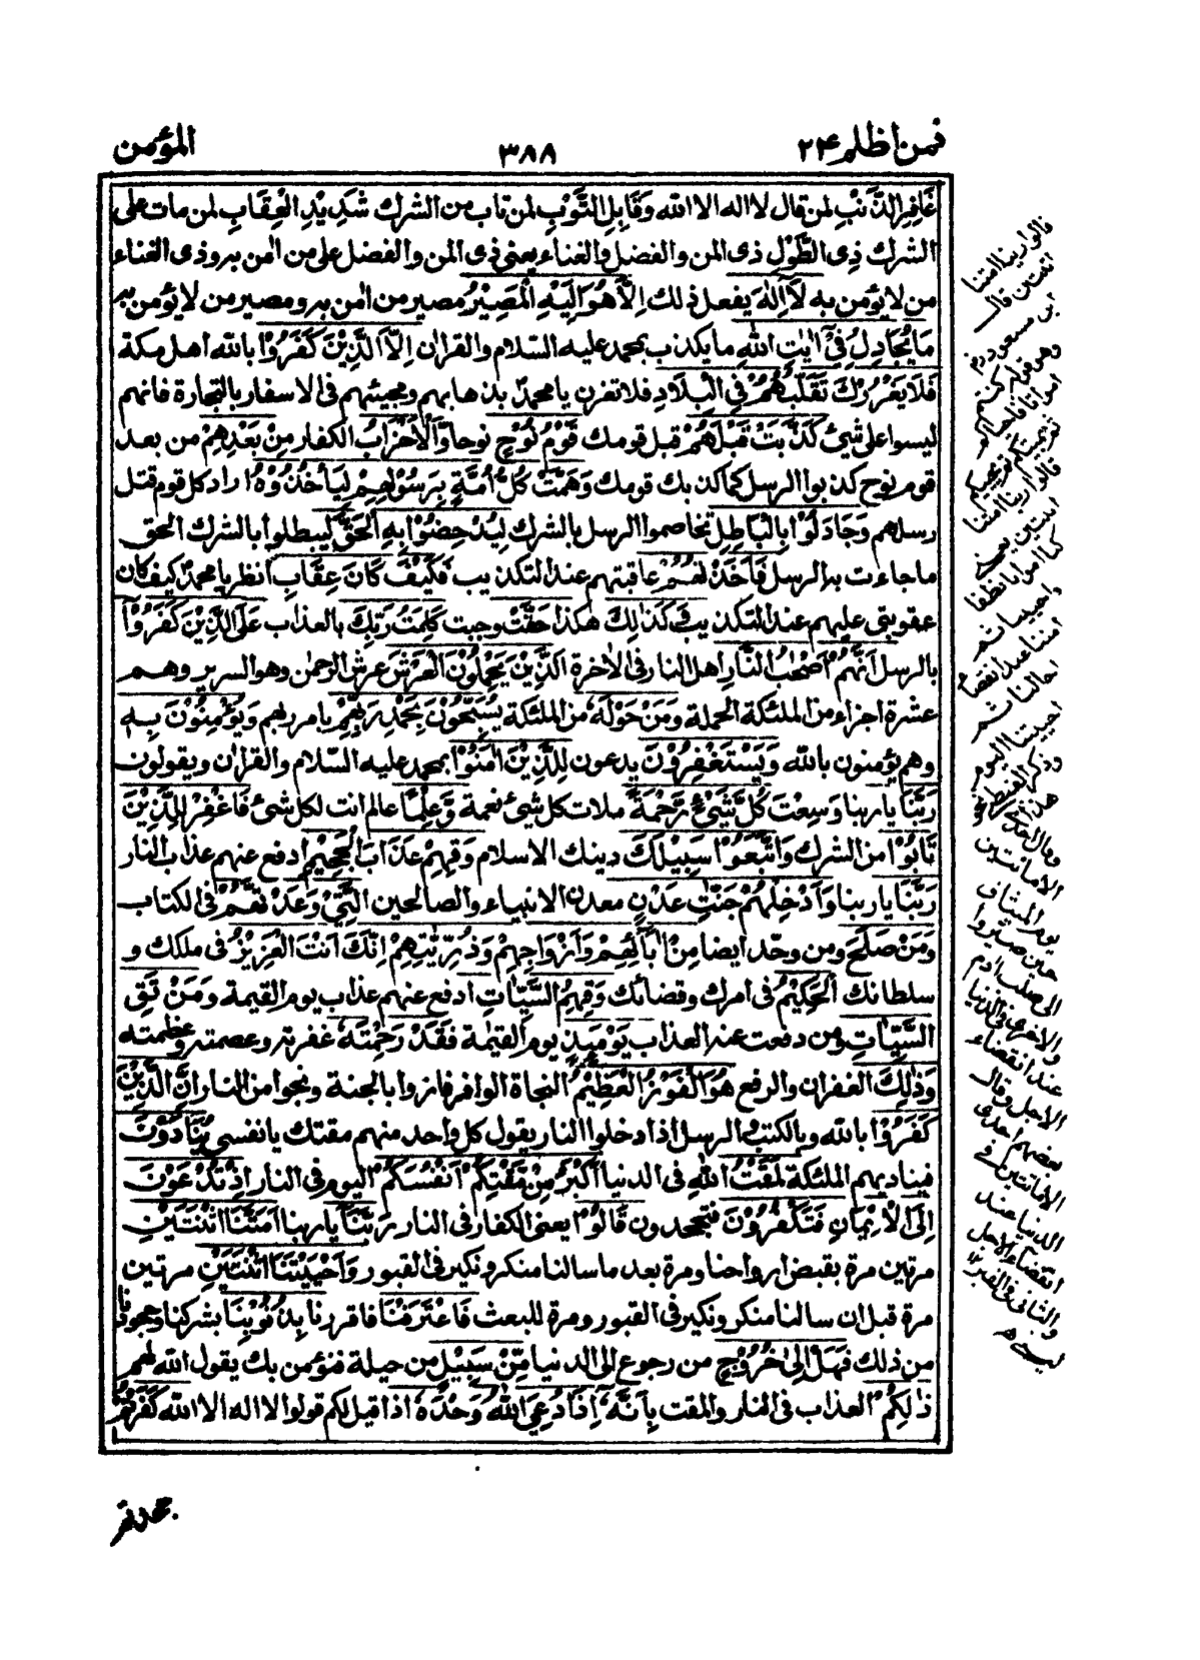 فمن اظلم ۲۴
۳۸۸
المؤمن
غَافِرِ الذَّنْبِ لمن قال لا اله الا الله وَقَابِلِ التَّوْبِ لمن تاب من الشرك شَدِيْدِ الْعِقَابِ لمن مات على
الشرك ذِى الطَّوْلِ ذى المن والفضل والغناء يعنى ذى المن والفضل على من اٰمن به وذى الغناء
من لا يؤمن به لَآ اِلٰهَ يفعل ذلك اِلَّا هُوَ اِلَيْهِ الْمَصِيْرُ مصير من اٰمن به ومصير من لا يؤمن به
مَا يُجَادِلُ فِيْٓ اٰيٰتِ اللّٰهِ ما يكذب بمحمد عليه السّلام والقراٰن اِلَّا الَّذِيْنَ كَفَرُوْا بالله اهل مكة
فَلَا يَغْرُرْكَ تَقَلُّبُهُمْ فِي الْبِلَادِ فلا تغرن يا محمدٌ بذهابهم ومجيئهم فى الاسفار بالتجارة فانهم
ليسوا على شئ كَذَّبَتْ قَبْلَهُمْ قبل قومك قَوْمُ نُوْحٍ نوحا وَّالْاَحْزَابُ الكفار مِنْۢ بَعْدِهِمْ من بعد
قوم نوح كذبوا الرسل كما كذبك قومك وَهَمَّتْ كُلُّ اُمَّةٍ بِرَسُوْلِهِمْ لِيَأْخُذُوْهُ اراد كل قوم قتل
رسلهم وَجَادَلُوْا بِالْبَاطِلِ تخاصموا الرسل بالشرك لِيُدْحِضُوْا بِهِ الْحَقَّ ليبطلوا بالشرك الحق
ما جاءت به الرسل فَاَخَذْتُهُمْ عاقبتهم عند التكذيب فَكَيْفَ كَانَ عِقَابِ انظر يا محمدٌ كيف كان
عقوبتى عليهم عند التكذيب وَكَذٰلِكَ هكذا حَقَّتْ وجبت كَلِمَتُ رَبِّكَ بالعذاب عَلَى الَّذِيْنَ كَفَرُوْٓا
بالرسل اَنَّهُمْ اَصْحٰبُ النَّارِ اهل النار فى الاٰخرة اَلَّذِيْنَ يَحْمِلُوْنَ الْعَرْشَ عرش الرحمٰن وهو السرير وهم
عشرة اجزاء من الملئكة الحملة وَمَنْ حَوْلَهٗ من الملئكة يُسَبِّحُوْنَ بِحَمْدِ رَبِّهِمْ بامر ربهم وَيُؤْمِنُوْنَ بِهٖ
وهم يؤمنون بالله وَيَسْتَغْفِرُوْنَ يدعون لِلَّذِيْنَ اٰمَنُوْا بمحمد عليه السّلام والقراٰن ويقولون
رَبَّنَا يا ربنا وَسِعْتَ كُلَّ شَيْءٍ رَّحْمَةً ملات كل شئ نعمة وَّعِلْمًا عالم انت لكل شئ فَاغْفِرْ لِلَّذِيْنَ
تَابُوْا من الشرك وَاتَّبَعُوْا سَبِيْلَكَ دينك الاسلام وَقِهِمْ عَذَابَ الْجَحِيْمِ ادفع عنهم عذاب النار
رَبَّنَا يا ربنا وَاَدْخِلْهُمْ جَنّٰتِ عَدْنٍ معدن الانبياء والصالحين الَّتِيْ وَعَدْتَّهُمْ فى الكتاب
وَمَنْ صَلَحَ ومن وحّد ايضا مِنْ اٰبَآئِهِمْ وَاَزْوَاجِهِمْ وَذُرِّيّٰتِهِمْ اِنَّكَ اَنْتَ الْعَزِيْزُ فى ملكك و
سلطانك الْحَكِيْمُ فى امرك وقضائك وَقِهِمُ السَّيِّاٰتِ ادفع عنهم عذاب يوم القيمة وَمَنْ تَقِ
السَّيِّاٰتِ ومن دفعت عنه العذاب يَوْمَئِذٍ يوم القيٰمة فَقَدْ رَحِمْتَهٗ غفرته وعصمته وعظمته
وَذٰلِكَ الغفران والرفع هُوَ الْفَوْزُ الْعَظِيْمُ النجاة الوافر فازوا بالجنة ونجوا من النار اِنَّ الَّذِيْنَ
كَفَرُوْا بالله وبالكتب والرسل اذا دخلوا النار يقول كل واحد منهم مقتك يا نفسى يُنَادَوْنَ
فيناديهم الملئكة لَمَقْتُ اللّٰهِ فى الدنيا اَكْبَرُ مِنْ مَّقْتِكُمْ اَنْفُسَكُمْ اليوم فى النار اِذْ تُدْعَوْنَ
اِلَى الْاِيْمَانِ فَتَكْفُرُوْنَ فتجحدون قَالُوْا يعنى الكفار فى النار رَبَّنَآ يا ربنا اَمَتَّنَا اثْنَتَيْنِ
مرتين مرة بقبض ارواحنا ومرة بعد ما سالنا منكر ونكير فى القبور وَاَحْيَيْتَنَا اثْنَتَيْنِ مرتين
مرة قبل ان سالنا منكر ونكير فى القبور ومرة للبعث فَاعْتَرَفْنَا فاقررنا بِذُنُوْبِنَا بشركنا وجحودنا
من ذلك فَهَلْ اِلٰى خُرُوْجٍ من رجوع الى الدنيا مِّنْ سَبِيْلٍ من حيلة فنؤمن بك يقول الله لهم
ذٰلِكُمْ العذاب فى النار والمقت بِاَنَّهٗٓ اِذَا دُعِيَ اللّٰهُ وَحْدَهٗ اذا قيل لكم قولوا لا اله الا الله كَفَرْتُمْ
قالوا ربنا امتنا
اثنتين قال
ابن مسعود
قالوا ربنا امتنا
اثنتين
احييتنا اليوم
الاماتتين
يوم الميثاق
حين صيروا
الى صلب اٰدم
والاخرى فى الدنيا
عند انقضاء
الاجل وقال
بعضهم احدى
الاماتتين فى
الدنيا عند
انقضاء الاجل
والثانى فى القبر ۱۲